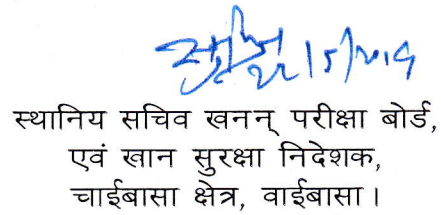 22/5/2019
स्थानिय सचिव खनन् परीक्षा बोर्ड,
एवं खान सुरक्षा निदेशक,
चाईबासा क्षेत्र, वाईबासा।